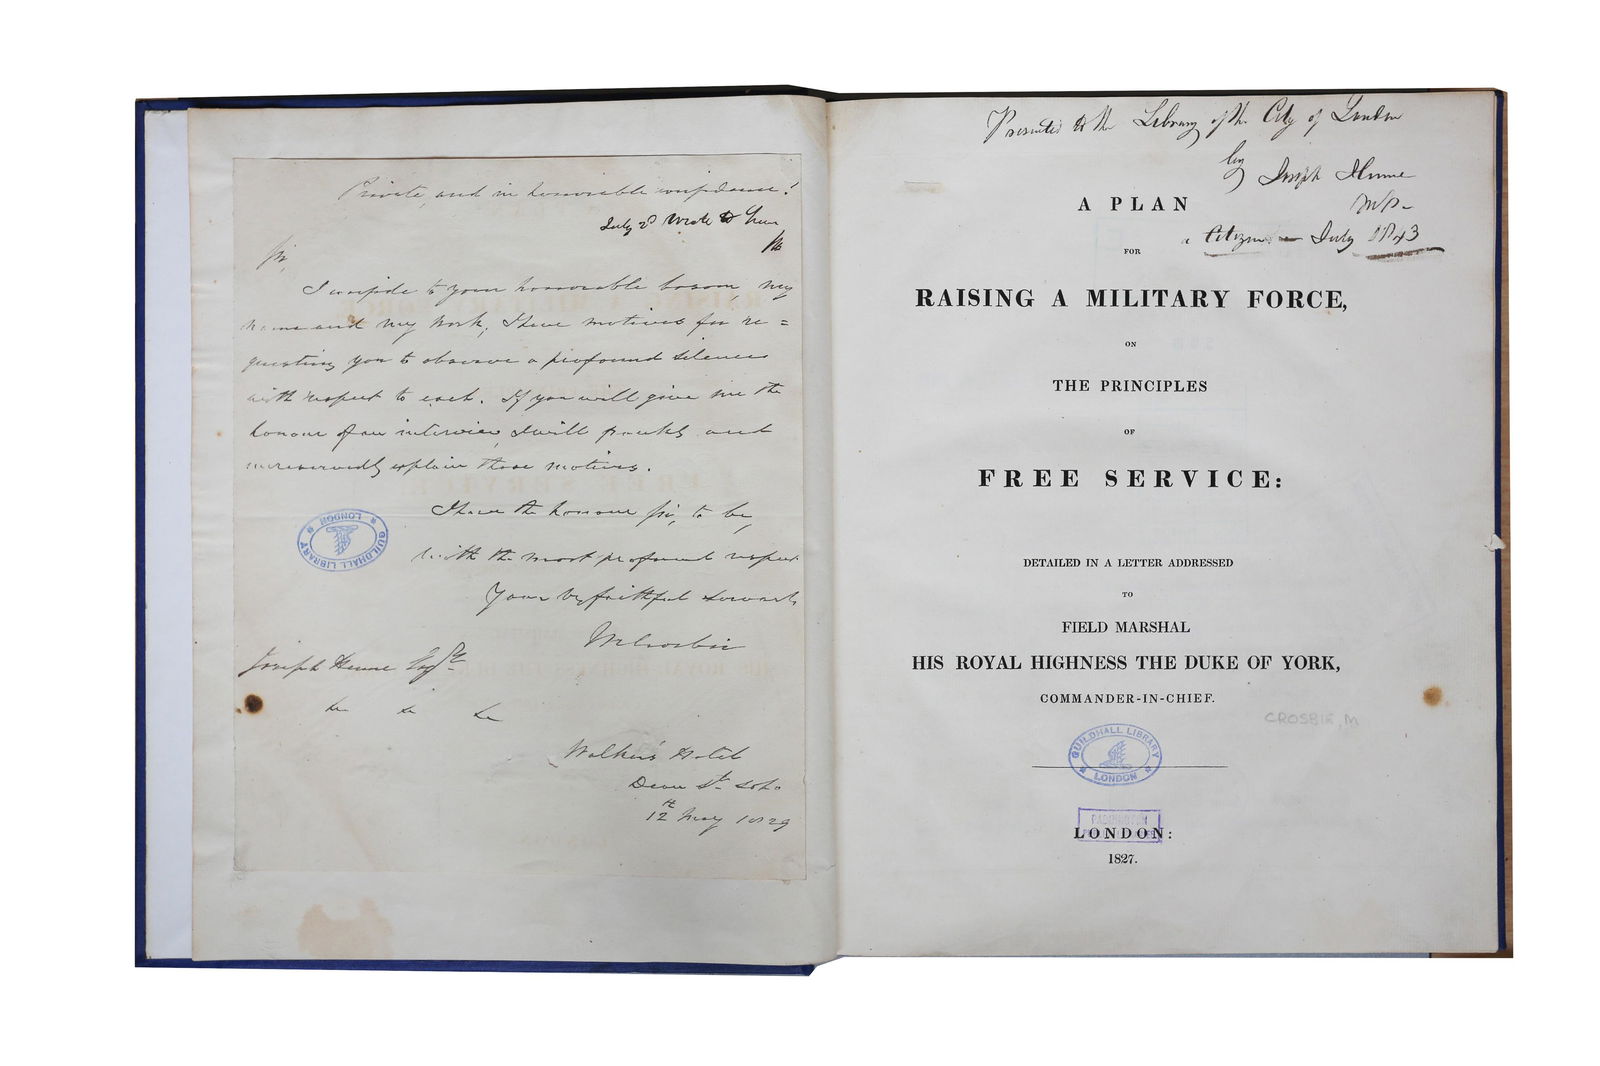 Private, and in honorable confidence!
July 2d Wrote to him
Sir,
I confide to your honorable bosom my
name and my work; I have motives for re=
questing you to observe a profound silence
with respect to each. If you will give me the
honour of an interview, I will frankly and
unreservedly explain those motives.
I have the honour Sir, to be,
with the most profound respect
Your faithful Servant,
MCrosbie
Joseph Hume Esqre
&c &c &c
Walker's Hotel
Dean St. Soho
12th May 1829
GUILDHALL LIBRARY
LONDON
Presented to the Library of the City of London
by Joseph Hume
MP.
a Citizen — July 1843
A PLAN
FOR
RAISING A MILITARY FORCE,
ON
THE PRINCIPLES
OF
FREE SERVICE:
DETAILED IN A LETTER ADDRESSED
TO
FIELD MARSHAL
HIS ROYAL HIGHNESS THE DUKE OF YORK,
COMMANDER-IN-CHIEF.
CROSBIE, M
GUILDHALL LIBRARY
LONDON
PADDINGTON
LONDON:
1827.